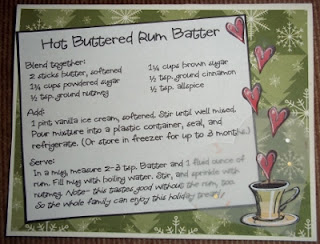 Hot Buttered Rum Batter
Blend together:
2 sticks butter, softened
1¼ cups powdered sugar
½ tsp. ground nutmeg
1¼ cups brown sugar
½ tsp. ground cinnamon
½ tsp. allspice
Add:
1 pint vanilla ice cream, softened. Stir until well mixed.
Pour mixture into a plastic container, seal, and
refrigerate. (Or store in freezer for up to 3 months.)
Serve:
In a mug, measure 2-3 tsp. Batter and 1 fluid ounce of
rum. Fill mug with boiling water. Stir, and sprinkle with
nutmeg. Note- this tastes good without the rum, too.
So the whole family can enjoy this holiday treat!